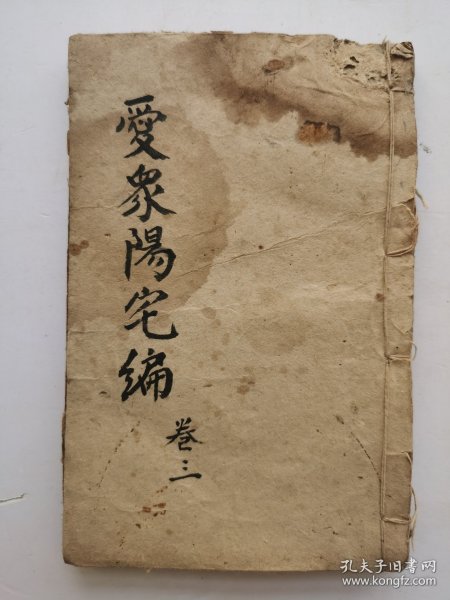 愛衆陽宅編
卷三
孔夫子旧书网
www.kongfz.com